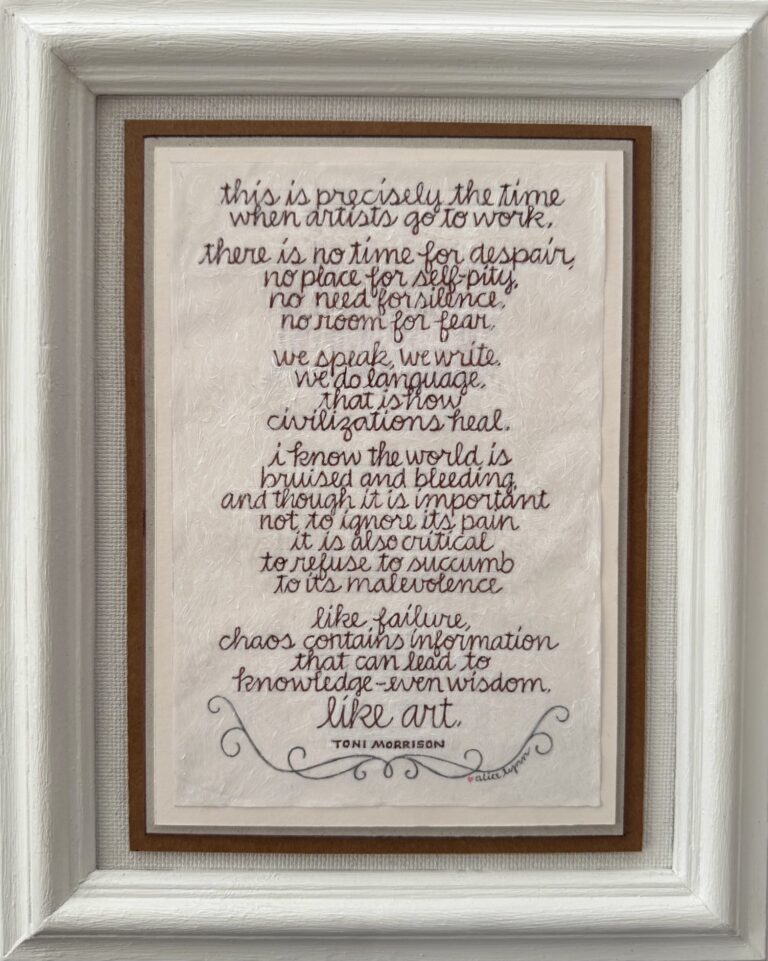 this is precisely the time
when artists go to work.
there is no time for despair,
no place for self-pity,
no need for silence,
no room for fear.
we speak, we write,
we do language.
that is how
civilizations heal.
i know the world is
bruised and bleeding,
and though it is important
not to ignore its pain
it is also critical
to refuse to succumb
to its malevolence
like failure,
chaos contains information
that can lead to
knowledge-even wisdom.
like art.
TONI MORRISON
alice lynn